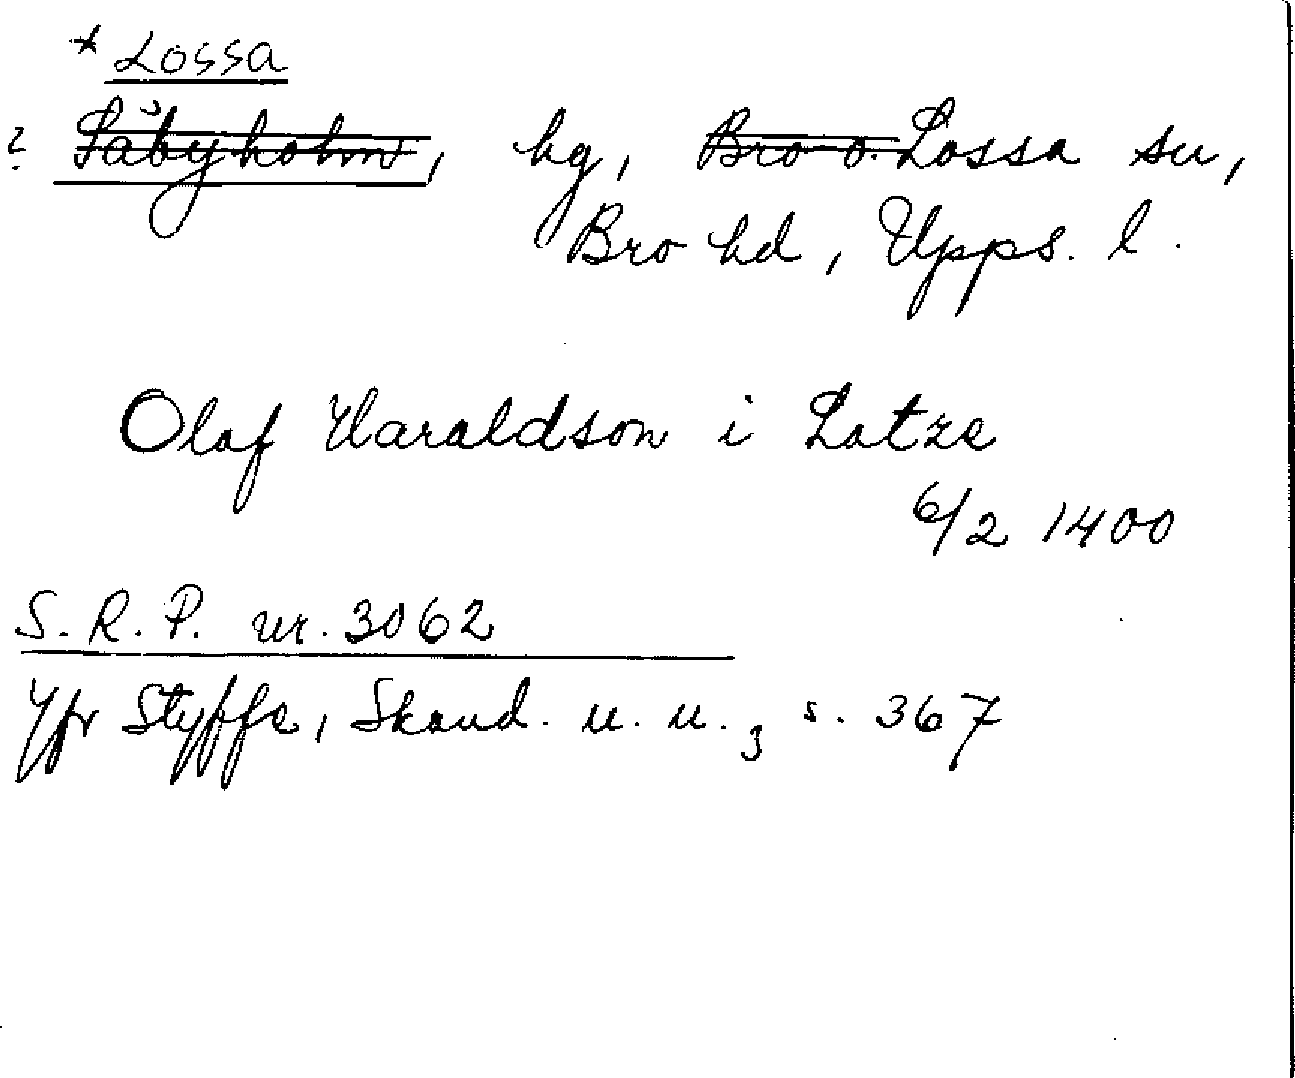 * Lossa
? Låbyholm, hg, Bro o. Lossa sn,
Bro hd, Upps. l.
Olaf Haraldson i Lotze
6/2 1400
S. R. P. nr. 3062
Yfr Styffe, Skand. u. u. 3 s. 367